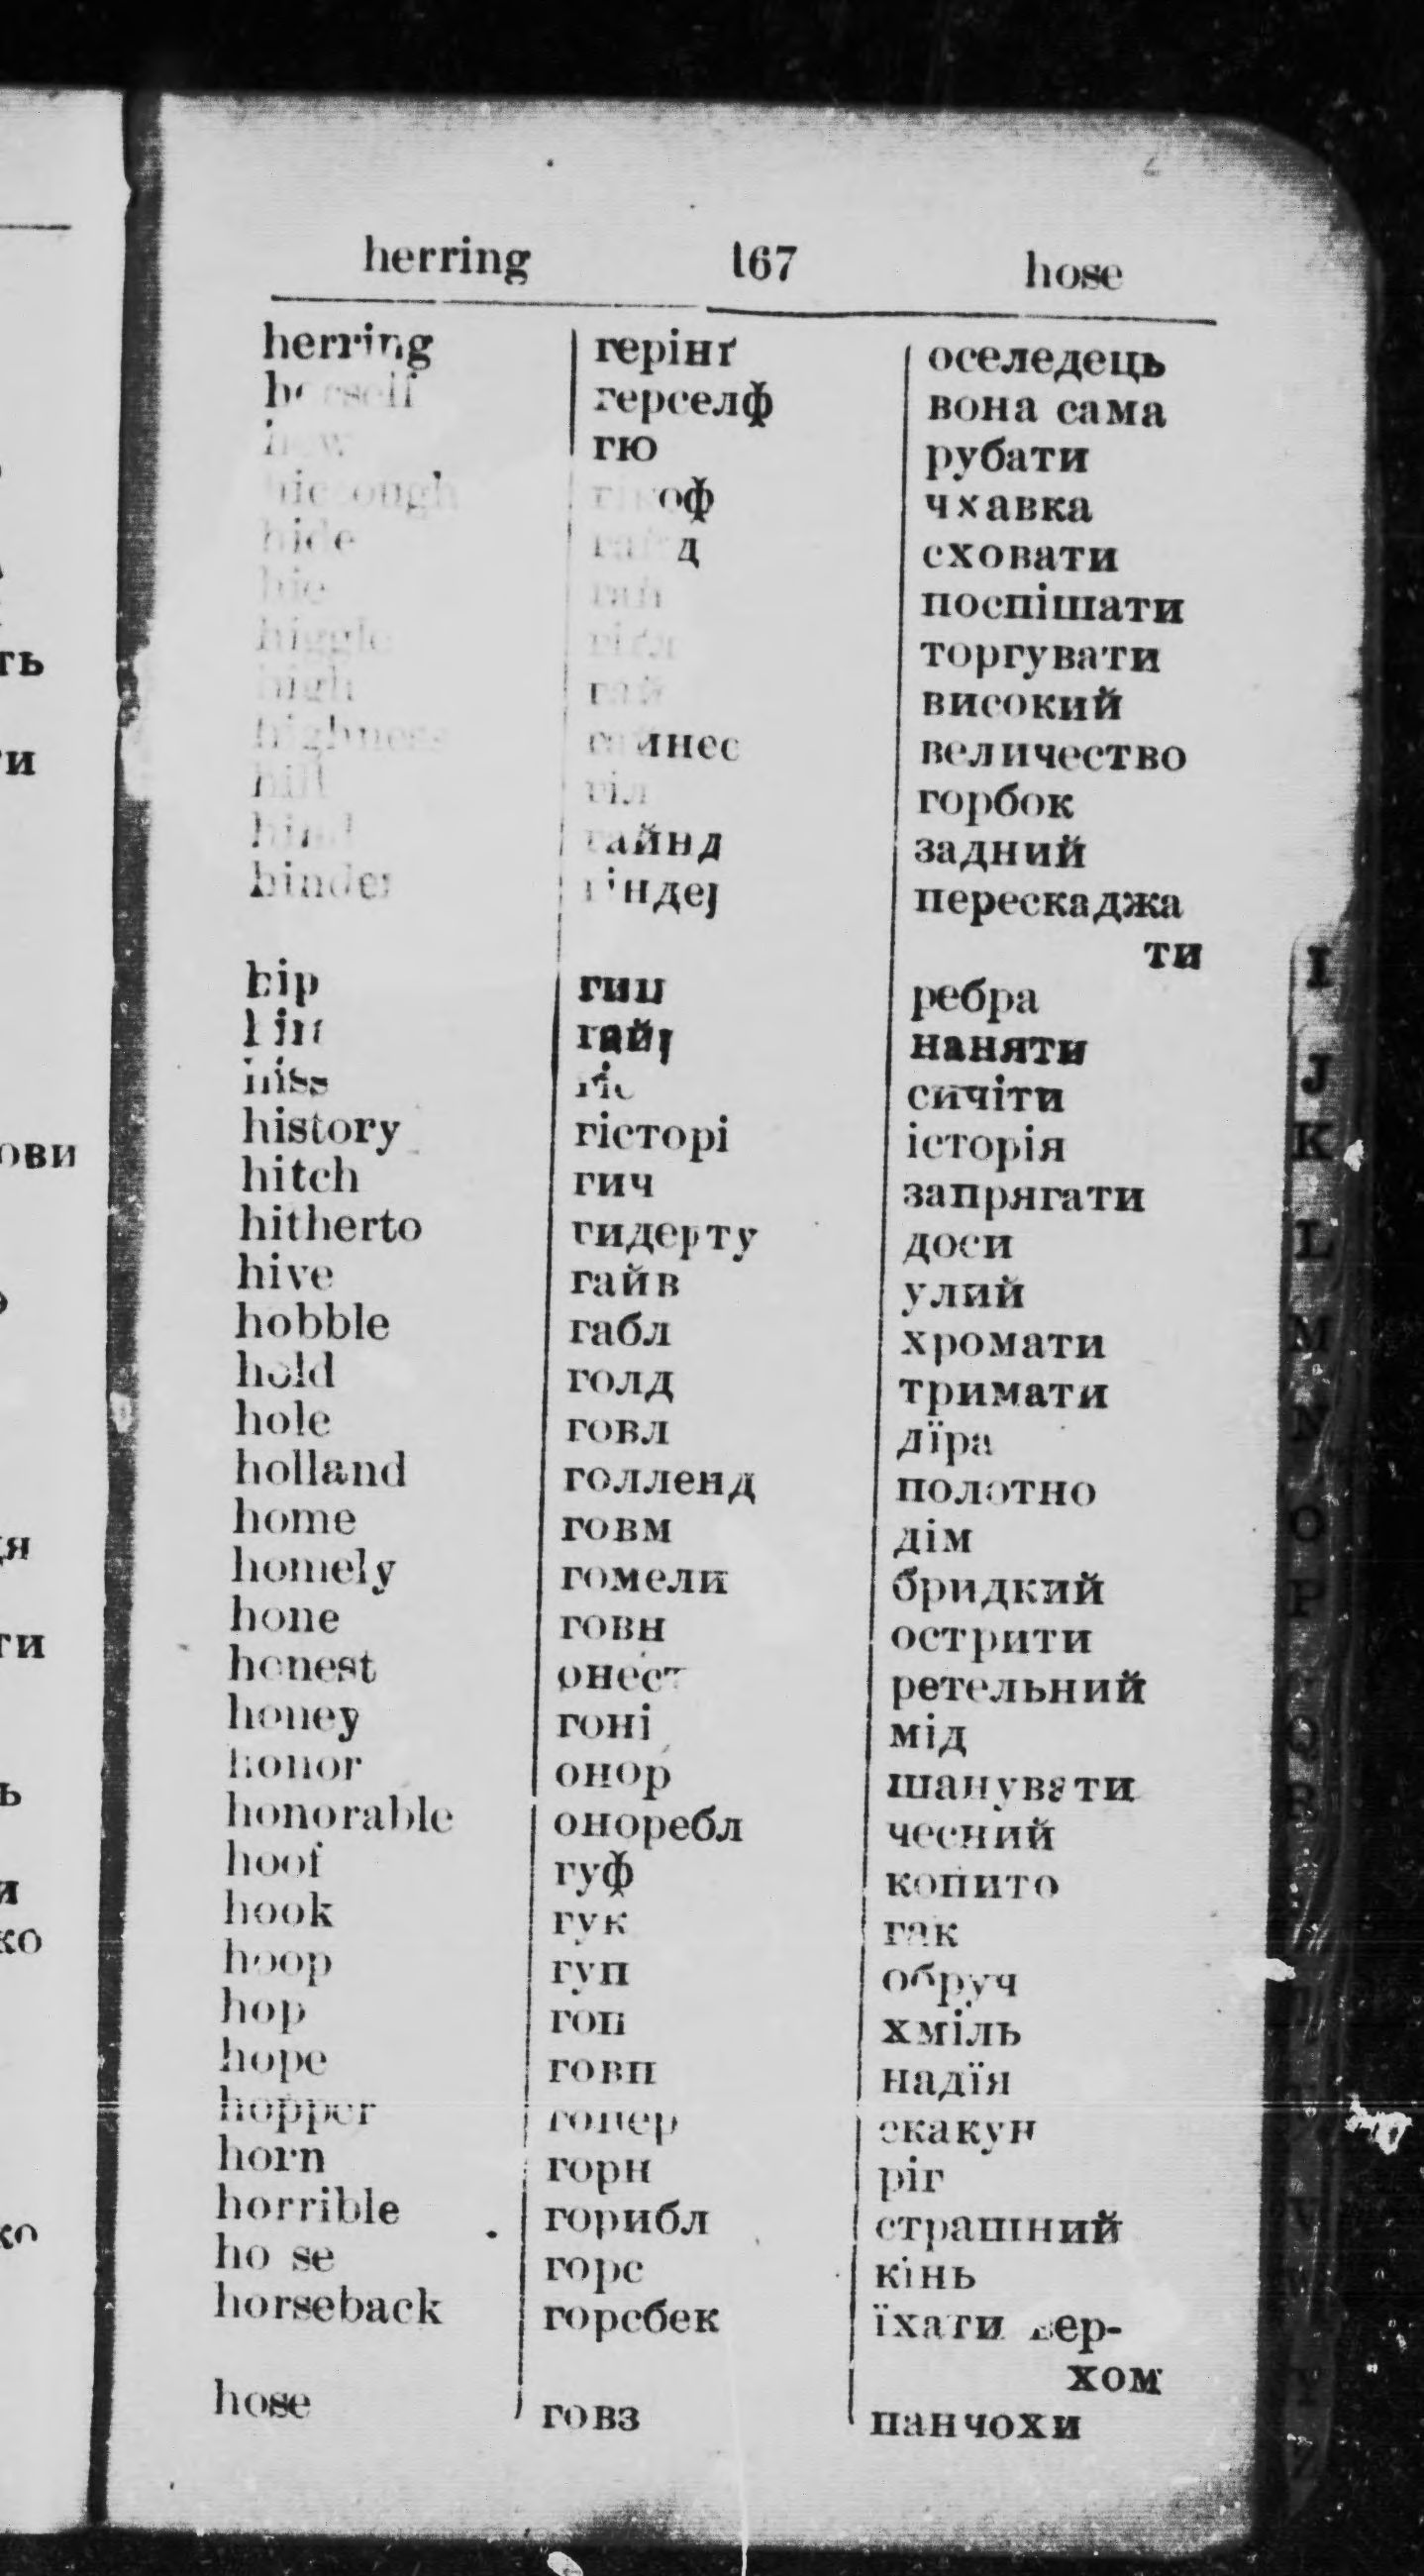 herring 167 hose
herring герінґ оселедець
herself герселф вона сама
hew гю рубати
hiccough гікоф чхавка
hide гайд сховати
hie гай поспішати
higgle торгувати
high гай високий
highness гайнес величество
hill гіл горбок
hind гайнд задний
hinder гіндер перескаджа
ти
hip гип ребра
hire гайр наняти
hiss гіс сичіти
history гісторі історія
hitch гич запрягати
hitherto гидерту доси
hive гайв улий
hobble габл хромати
hold голд тримати
hole говл діра
holland голленд полотно
home говм дім
homely гомели бридкий
hone говн острити
honest онест ретельний
honey гоні мід
honor онор шанувати
honorable оноребл чесний
hoof гуф копито
hook гук гак
hoop гуп обруч
hop гоп хміль
hope говп надїя
hopper гопер скакун
horn горн ріг
horrible горибл страшний
ho se горс кінь
horseback горсбек їхати вер-
хом
hose говз панчохи
ть
ти
ови
ти
ь
и
ко
ко
I
J
K
L
M
N
O
P
Q
R